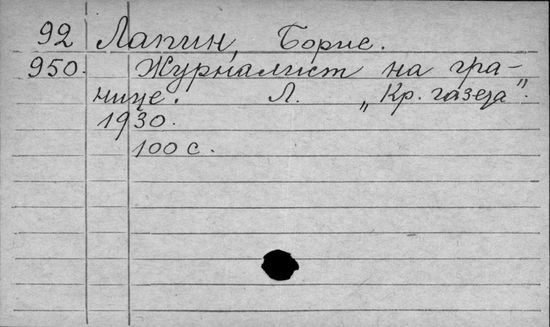 92 Лапин, Борис.
950. Журналист на гра-
нице. Л. „Кр. газета".
1930.
100 с.